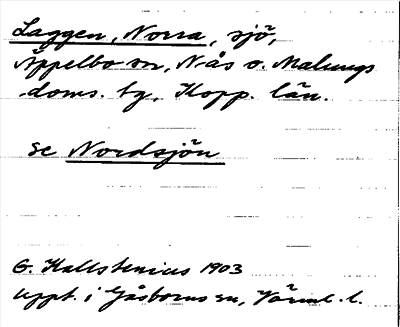 Laggen, Norra, sjö,
Äppelbo sn, Nås o. Malungs
doms. tg, Kopp. län.
se Nordsjön
G. Kallstenius 1903
uppt. i Gåsborns sn, Värml. l.